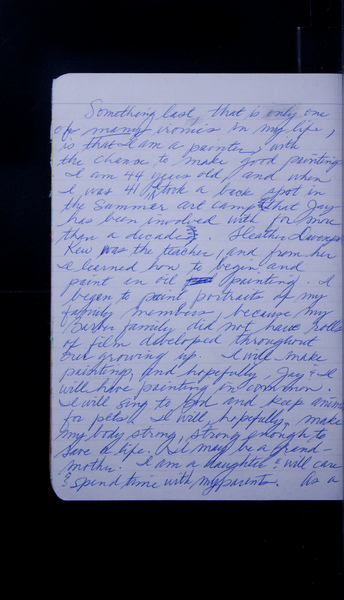 Something last, that is only one
of many ironies in my life,
is that I am a painter, with
the chance to make good paintings.
I am 44 years old, and when
I was 41 I took a back spot in
the Summer art camp that Jay
has been involved with for more
than a decade. Heather
Kew was the teacher, and from her
I learned how to begin and
paint an oil painting. I
began to paint portraits of my
family members, because my
family did not have rolls
of film developed throughout
our growing up. I will make
paintings, and hopefully, Jay & I
will have painting in common.
I will sing to God and keep
for pets. I will, hopefully, make
my body strong, strong enough to
save a life. I may be a grand-
mother. I am a daughter & will care
& spend time with my parents. As a